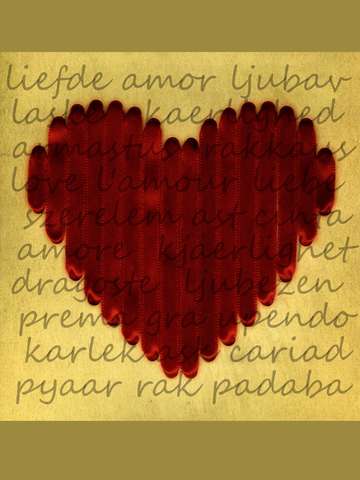 liefde amor ljubav
laske kaerlighed
armastus rakkaus
love l'amour liebe
szerelem ast cinta
amore kjaerlighet
dragoste ljubezen
prema gra upendo
karlek cariad
pyaar rak padaba